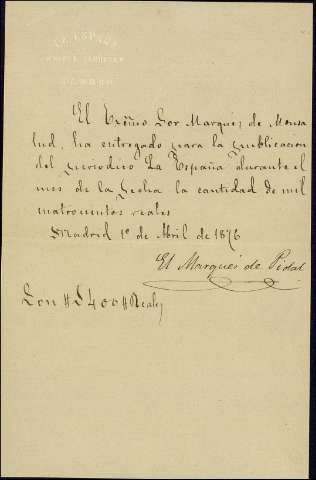 LA ESPAÑA
MADRID
El Exc̃mo Sor Marqués de Monsa
lud, ha entregado para la publicacion
del periodico La España durante el
mes de la fecha la cantidad de mil
cuatrocientos reales
Madrid 1º de Abril de 1876
El Marqués de Pidal
Son # 1400 # Reales